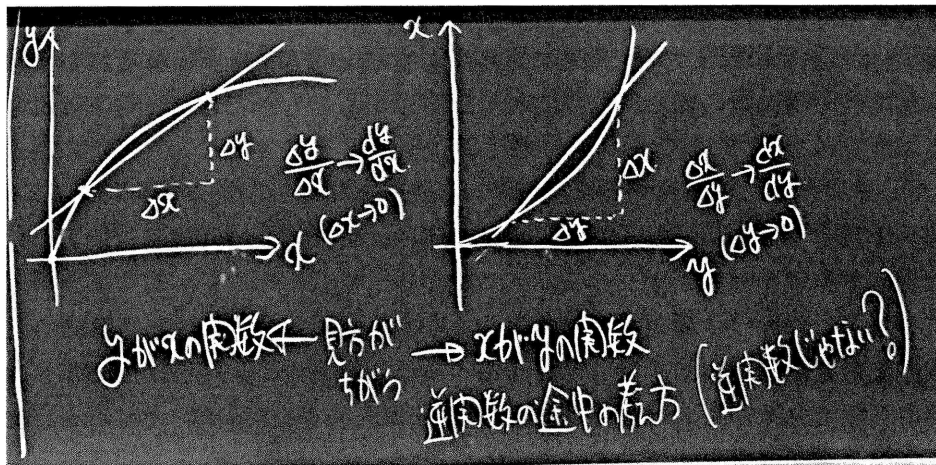 y
Δy
Δx
Δy/Δx → dy/dx
(Δx→0)
x
x
Δx
Δy
Δx/Δy → dx/dy
(Δy→0)
y
yがxの実数 ← 見方が
ちがう
→ xがyの実数
逆実数の途中の考え方 (逆実数じゃない?)